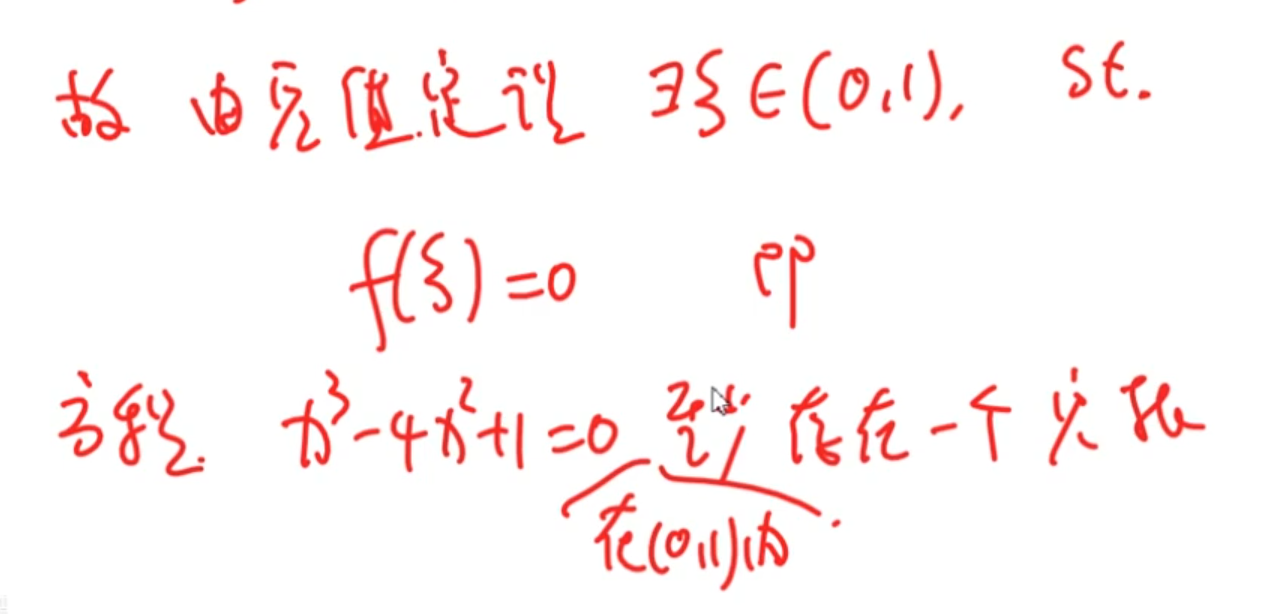 故 由零值定理 ∃ξ∈(0,1), st.
f(ξ)=0 即
方程 x³-4x²+1=0 至少存在一个实根.
在(0,1)内